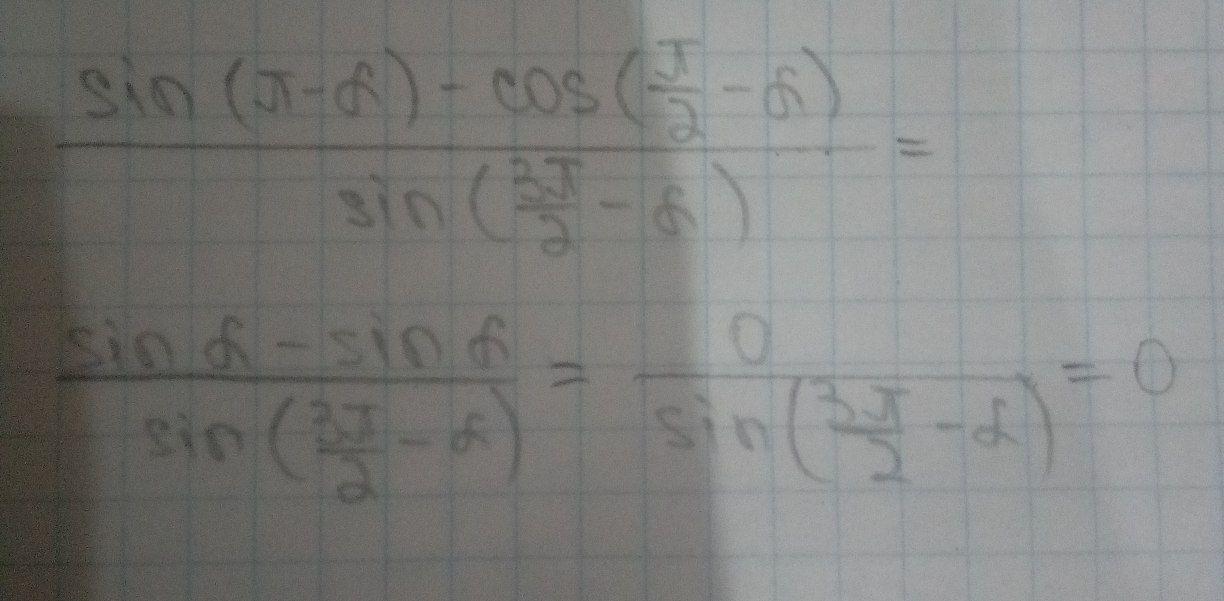 \frac{\sin(\pi-\alpha)-\cos(\frac{\pi}{2}-\alpha)}{\sin(\frac{3\pi}{2}-\alpha)}=
\frac{\sin\alpha-\sin\alpha}{\sin(\frac{3\pi}{2}-\alpha)}=\frac{0}{\sin(\frac{3\pi}{2}-\alpha)}=0